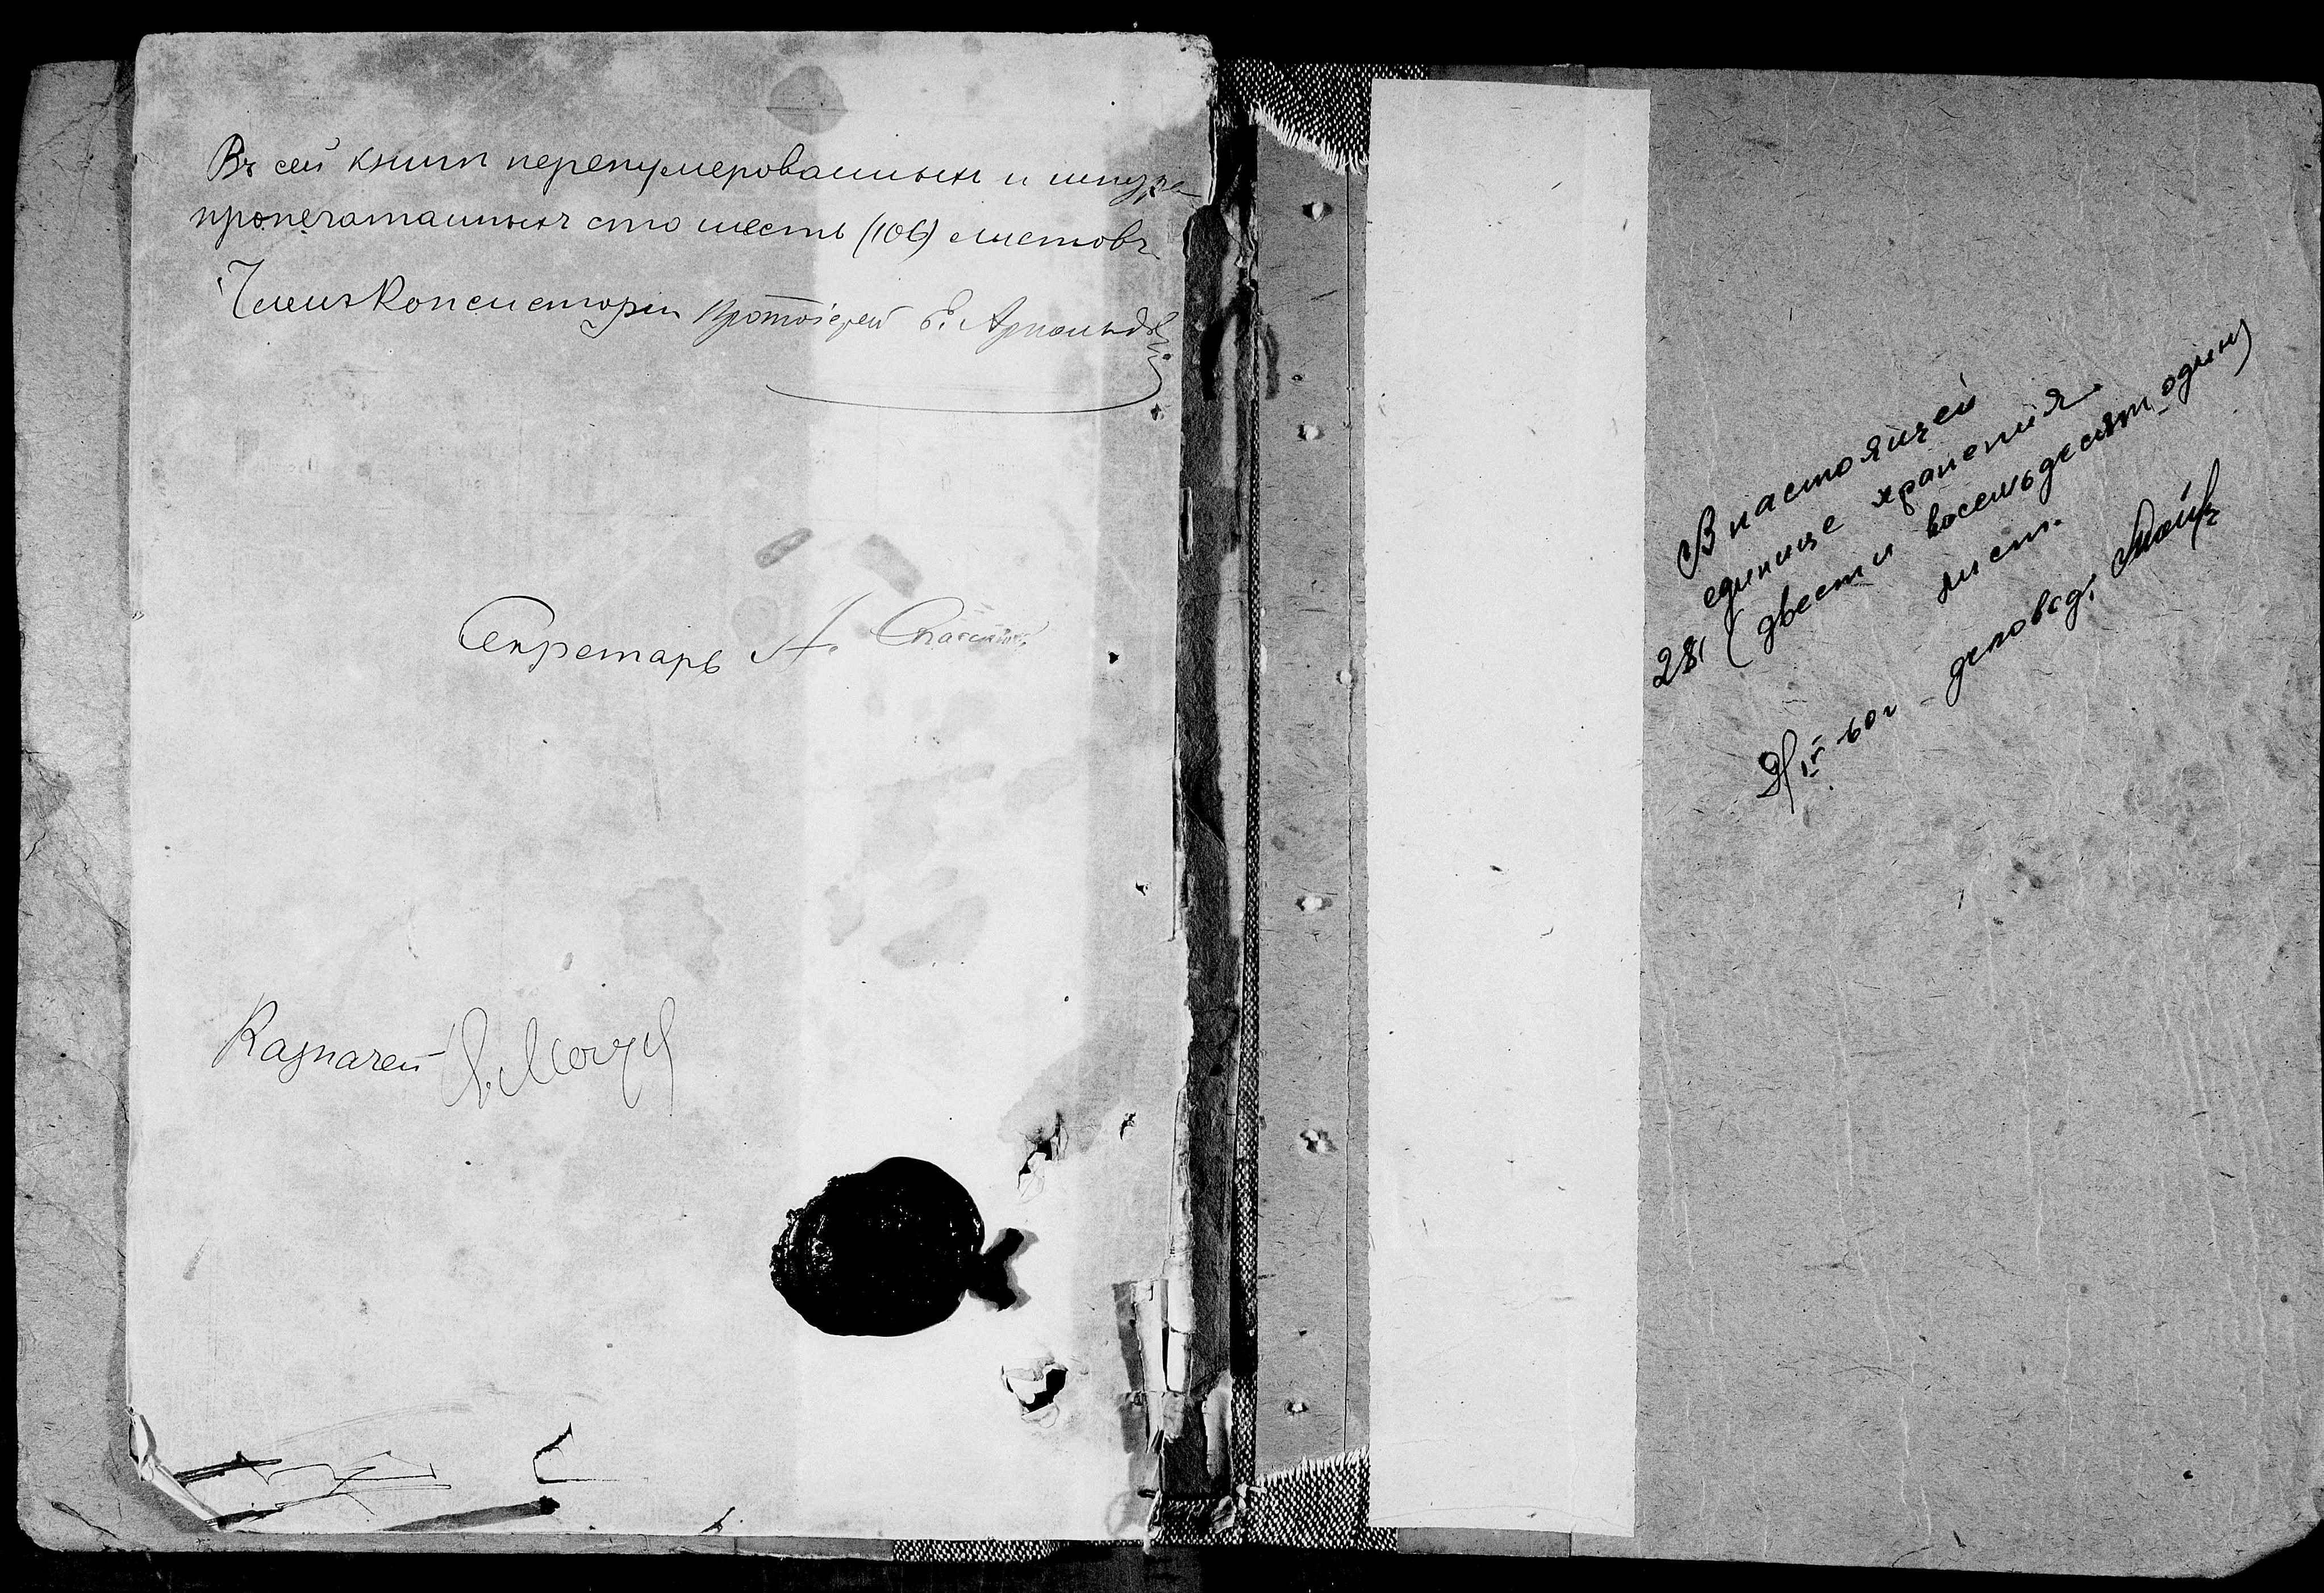 Въ сей книгѣ перенумерованныхъ и шнуро
пропечатанныхъ сто шесть (106) листовъ
Членъ Консисторіи Протоіерей Е. Арнольдъ
Секретарь А. Спасскій
Казначей
В настоящей
единице хранения
281 (двести восемьдесят один)
лист.
IV 60г - деловод.